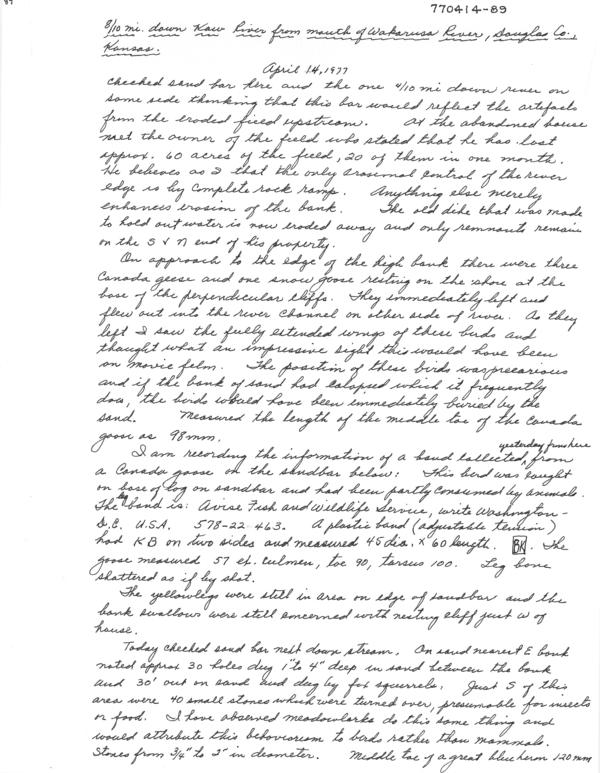 87
770414-89
8/10 mi. down Kaw River from mouth of Wakarusa River, Douglas Co.,
Kansas.
April 14, 1977
Checked sand bar here and the one 4/10 mi down river on
same side thinking that this bar would reflect the artefacts
from the eroded field upstream. At the abandoned house
met the owner of the field who stated that he has lost
approx. 60 acres of the field, 20 of them in one month.
He believes as I that the only erosional control of the river
edge is by complete rock ramp. Anything else merely
enhances erosion of the bank. The old dike that was made
to hold out water is now eroded away and only remnants remain
on the S & N end of his property.
On approach to the edge of the high bank there were three
Canada geese and one snow goose resting on the shore at the
base of the perpendicular cliffs. They immediately left and
flew out into the river channel on other side of river. As they
left I saw the fully extended wings of these birds and
thought what an impressive sight this would have been
on movie film. The position of these birds was precarious
and if the bank of sand had collapsed which it frequently
does, the birds would have been immediately buried by the
sand. Measured the length of the middle toe of the Canada
goose as 98 mm.
I am recording the information of a band collected yesterday from here from
a Canada goose on the sandbar below: This bird was caught
on base of log on sandbar and had been partly consumed by animals.
The leg band is: Avise Fish and Wildlife Service, write Washington-
D.C. U.S.A. 578-22463. A plastic band (adjustable tension)
had KB on two sides and measured 45 dia. x 60 length. BK. The
goose measured 57 ex. culmen, toe 90, tarsus 100. Leg bone
shattered as if by shot.
The yellowlegs were still in area on edge of sandbar and the
bank swallows were still concerned with nesting cliff just W of
house.
Today checked sand bar next down stream. On sand nearest E bank
noted approx 30 holes dug 1" to 4" deep in sand between the bank
and 30' out on sand and dug by fox squirrels. Just S of this
area were 40 small stones which were turned over, presumable for insects
or food. I have observed meadowlarks do this same thing and
would attribute this behaviorism to birds rather than mammals.
Stones from 3/4" to 2" in diameter. Middle toe of a great blue heron 120 mm